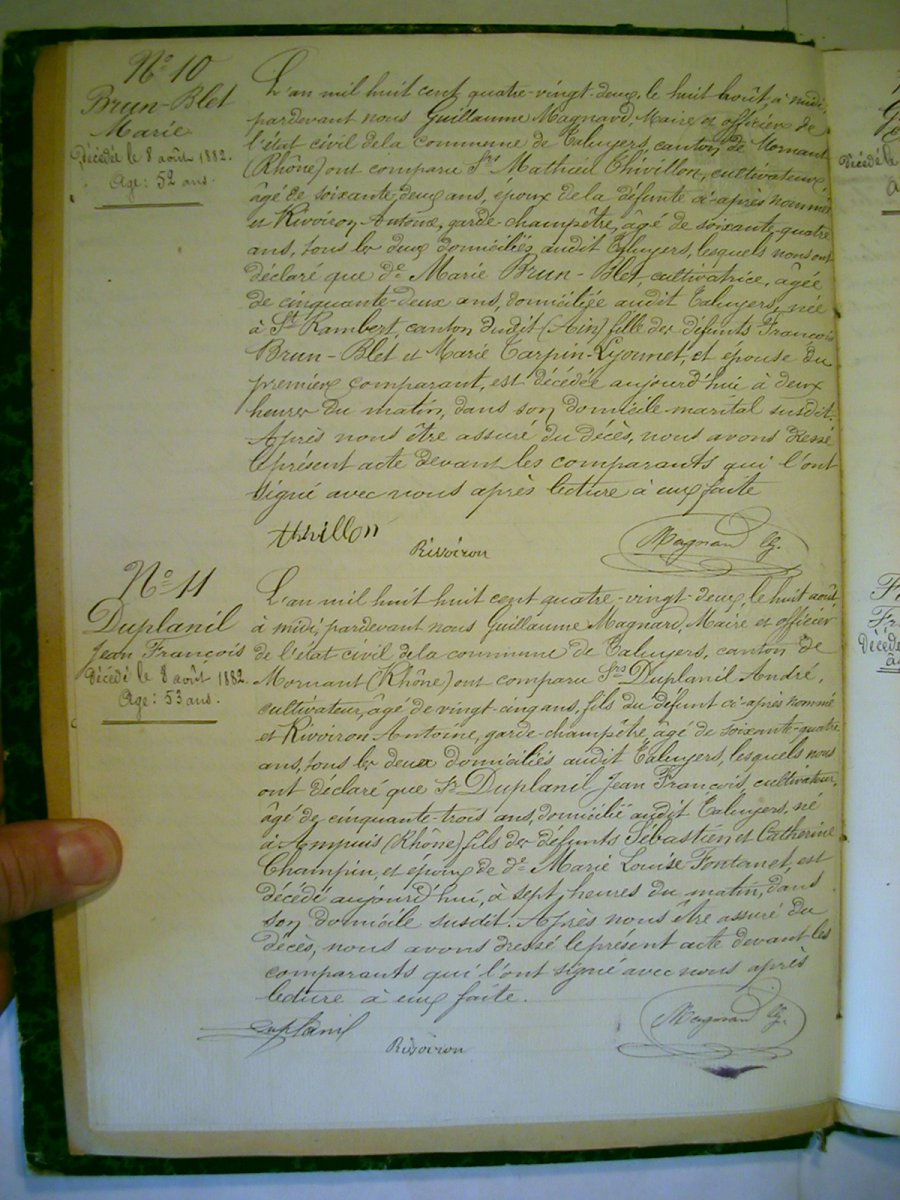 N° 10
Brun-Blet
Marie
Décédée le 8 août 1882.
Age: 52 ans.
L'an mil huit cent quatre-vingt-deux, le huit août, à midi,
pardevant nous Guillaume Magnard, Maire et officier de
l'état civil de la commune de Taluyers, canton de Mornant
(Rhône) ont comparu Srs Mathieu Thivillon, cultivateur,
âgé de soixante-deux ans, époux de la défunte ci-après nommée
et Rivoiron Antoine, garde-champêtre, âgé de soixante-quatre
ans, tous les deux domiciliés audit Taluyers, lesquels nous ont
déclaré que de Marie Brun-Blet, cultivatrice, âgée
de cinquante-deux ans, domiciliée audit Taluyers, née
à St Rambert, canton dudit (Ain) fille des défunts François
Brun-Blet et Marie Tarpin-Lyonnet, et épouse du
premier comparant, est décédée aujourd'hui à deux
heures du matin, dans son domicile marital susdit.
Après nous être assuré du décès, nous avons dressé
le présent acte devant les comparants qui l'ont
signé avec nous après lecture à eux faite
Rivoiron
Magnard
N° 11
Duplanil
Jean François
Décédé le 8 août 1882.
Age: 53 ans.
L'an mil huit huit cent quatre-vingt-deux, le huit août,
à midi, pardevant nous Guillaume Magnard, Maire et officier
de l'état civil de la commune de Taluyers, canton de
Mornant (Rhône) ont comparu Srs Duplanil André,
cultivateur, âgé de vingt-cinq ans, fils du défunt ci-après nommé
et Rivoiron Antoine, garde-champêtre, âgé de soixante-quatre
ans, tous les deux domiciliés audit Taluyers, lesquels nous
ont déclaré que Sr Duplanil Jean François, cultivateur,
âgé de cinquante-trois ans, domicilié audit Taluyers, né
à Ampuis (Rhône) fils des défunts Sébastien et Catherine
Champin, et époux de de Marie Louise Fontanet, est
décédé aujourd'hui, à sept heures du matin, dans
son domicile susdit. Après nous être assuré du
décès, nous avons dressé le présent acte devant les
comparants qui l'ont signé avec nous après
lecture à eux faite.
Duplanil
Rivoiron
Magnard
Décédé le